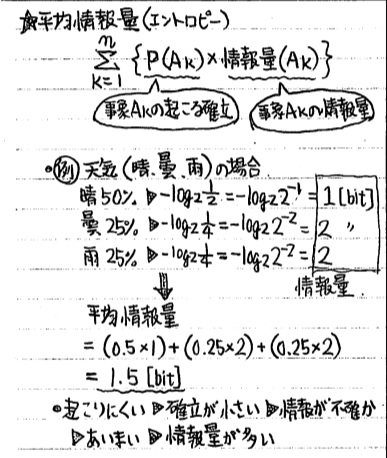 ☆平均情報量(エントロピー)
n
Σ {P(Ak)×情報量(Ak)}
k=1
事象Akの起こる確立 事象Akの情報量
・例 天気(晴、曇、雨)の場合
晴50% ▷ -log2 1/2 = -log2 2^-1 = 1[bit]
曇25% ▷ -log2 1/4 = -log2 2^-2 = 2 〃
雨25% ▷ -log2 1/4 = -log2 2^-2 = 2
情報量
⇓
平均情報量
= (0.5×1)+(0.25×2)+(0.25×2)
= 1.5 [bit]
・起こりにくい ▷ 確立が小さい ▷ 情報が不確か
▷ あいまい ▷ 情報量が多い